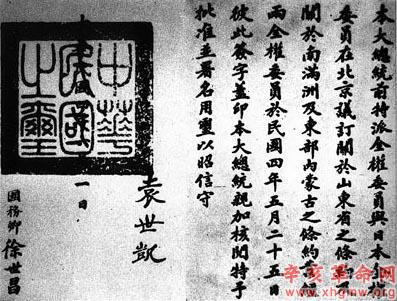 本大總統前特派全權委員與日本全權
委員在北京議訂關於山東省之條約
關於南滿洲及東部內蒙古之條約
兩全權委員於民國四年五月二十五日
彼此簽字蓋印本大總統親加核閱特予
批准並署名用璽以照信守
袁世凱
國務卿 徐世昌
一日
中華民國之璽
辛亥革命网
www.xhgmw.org